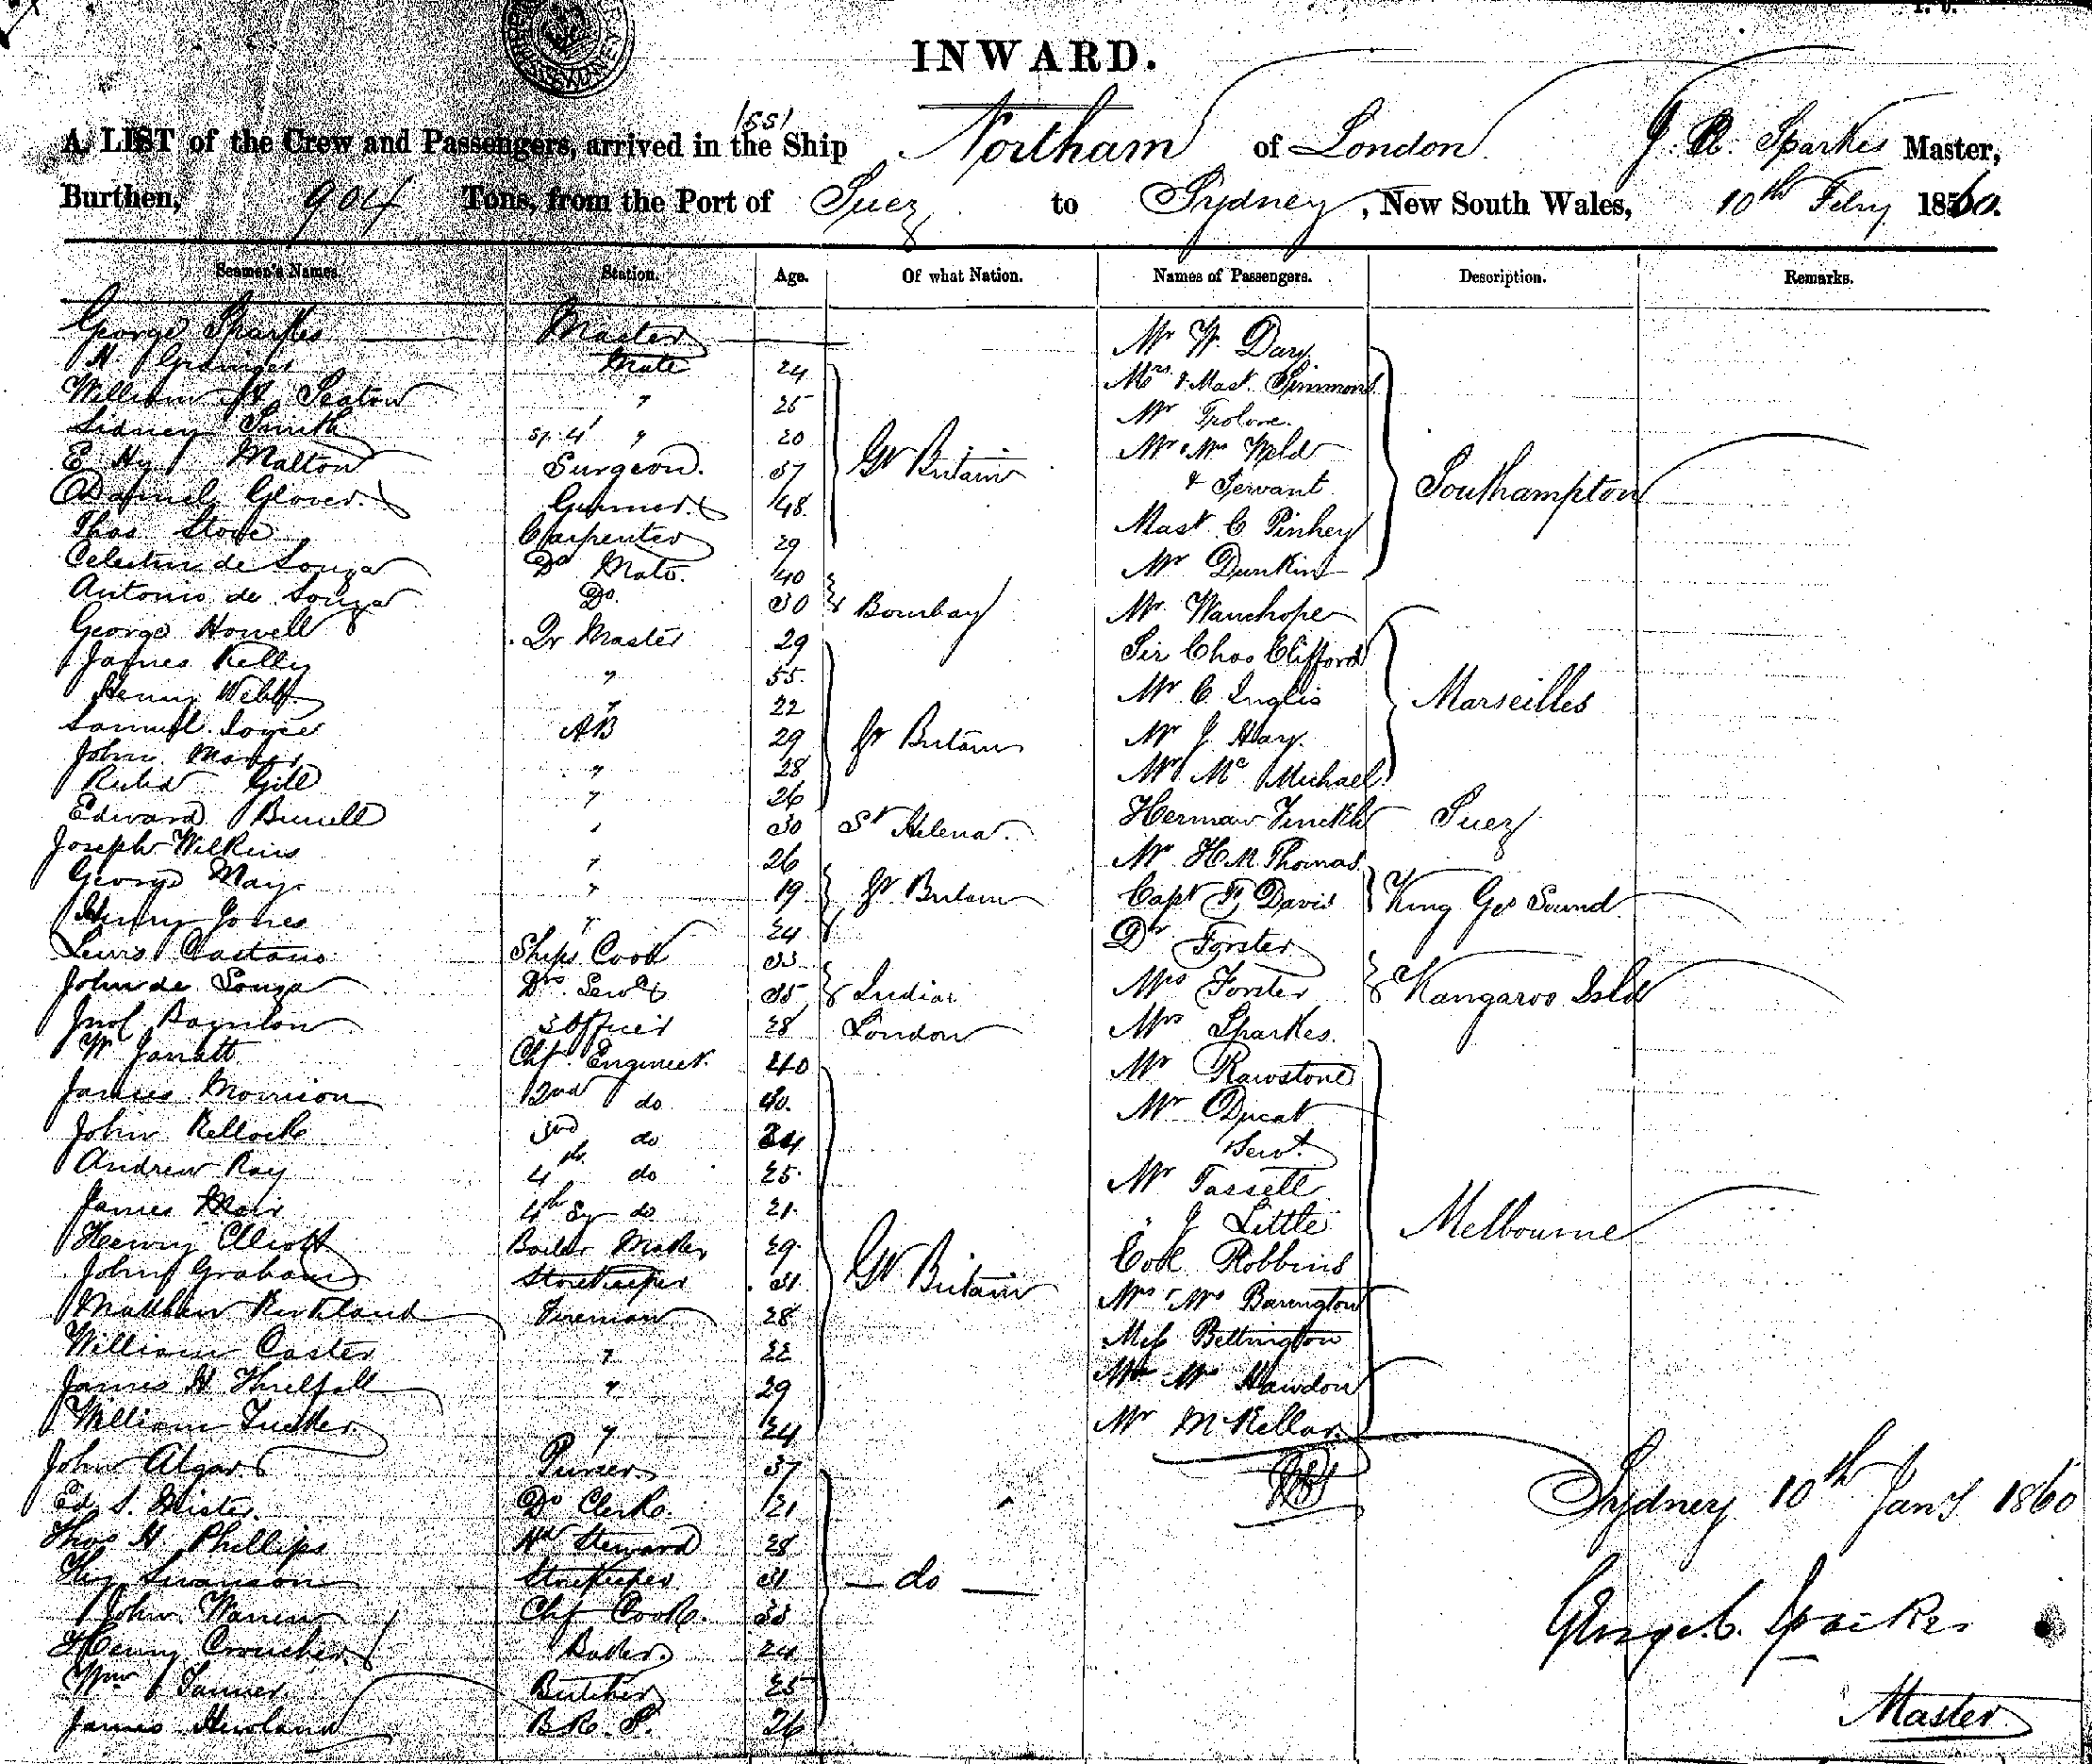 INWARD.
1551
A LIST of the Crew and Passengers, arrived in the Ship Northam of London G. R. Sparkes Master,
Burthen, 904 Tons, from the Port of Suez to Sydney, New South Wales, 10th Feby 1860.
Seamen's Names. Station. Age. Of what Nation. Names of Passengers. Description. Remarks.
George Sparkes Master Mr W. Day
H Grainger Mate 24 Mrs & Mast. Simmons
William H Seaton " 25 Mr Trolove
Sidney Smith " 20 Gt Britain Mr & Mrs Weld Southampton
E Hy Malton Surgeon. 37 & Servant
Daniel Glover. Gunner. 48 Mast. C Pinhey
Thos Stone Carpenter 29 Mr Dunkin
Celestin de Souza Do Mate. 40
Antonio de Souza Do. 30 Bombay Mr Wauchope
George Howell Qr Master 29 Sir Chas Clifford
James Kelly " 55 Mr C. Inglis Marseilles
Henry Webb " 22
Samuel Joyce AB 29 Gt Britain Mr J Hay.
John " 28 Mr McMichael
Richd Gill " 26
Edward Burrell " 30 St Helena. Herman Finckh Suez
Joseph Wilkins " 26 Mr H. M. Thomas
George May " 19 Gt Britain Capt Davis King Geo Sound
Henry Jones " 24 Dr Forster
Lewis Caetano Ships Cook 33
John de Souza Do Servt 35 India Mrs Forster Kangaroo Isld
Jno Boynton 3 Officer 28 London Mrs Sparkes.
W Jarratt Chf. Engineer. 40 Mr Rawstone
James Morrison 2nd do 40. Mr Ducat
John Kellock 3rd do 24 Servt.
Andrew Ray 4th do 25 Mr Tassell
James Mair 4th do 21 " J Little Melbourne
Henry Elliott Boiler Maker 29 Col Robbins
John Graham Storekeeper 31 Gt Britain
Matthew Kirkland Fireman 28 Mr & Mrs Barington
William Caster " 22 Miss Bettington
James H Threlfall " 29 Mr Mrs Hawdon
William Tucker " 24 Mr McKellar
John Algar Purser 37
Ed. S. Mister. Do Clerk. 21 Sydney 10th Jany 1860
Thos H. Phillips Hd Steward 28
Hy Swanson Storekeeper 31 do
John Warren Chf Cook. 33 George C. Sparkes
Henry Croucher Baker. 24
Wm Tanner Butcher 25 Master
James Newland B. K. P. 26